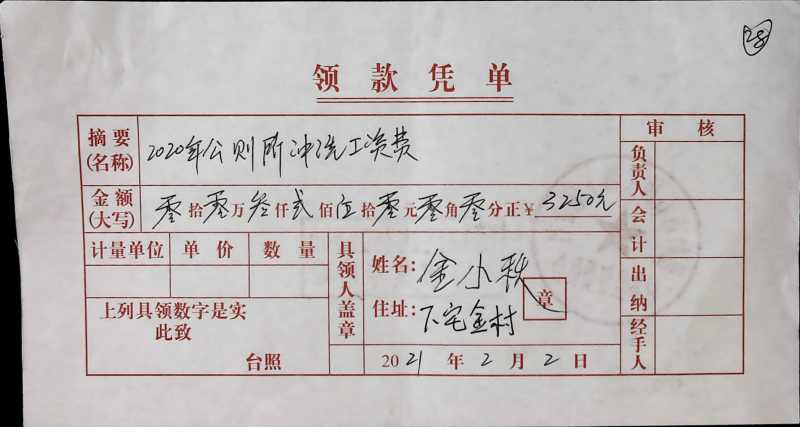 28
领款凭单
摘要(名称) 2020年公厕所冲洗工资费
审核
金额(大写) 零拾零万叁仟贰佰伍拾零元零角零分正¥3250元
负责人
会计
计量单位 单价 数量
具领人盖章
姓名: 金小秧
章
住址: 下宅金村
出纳
上列具领数字是实
此致
台照
2021年2月2日
经手人